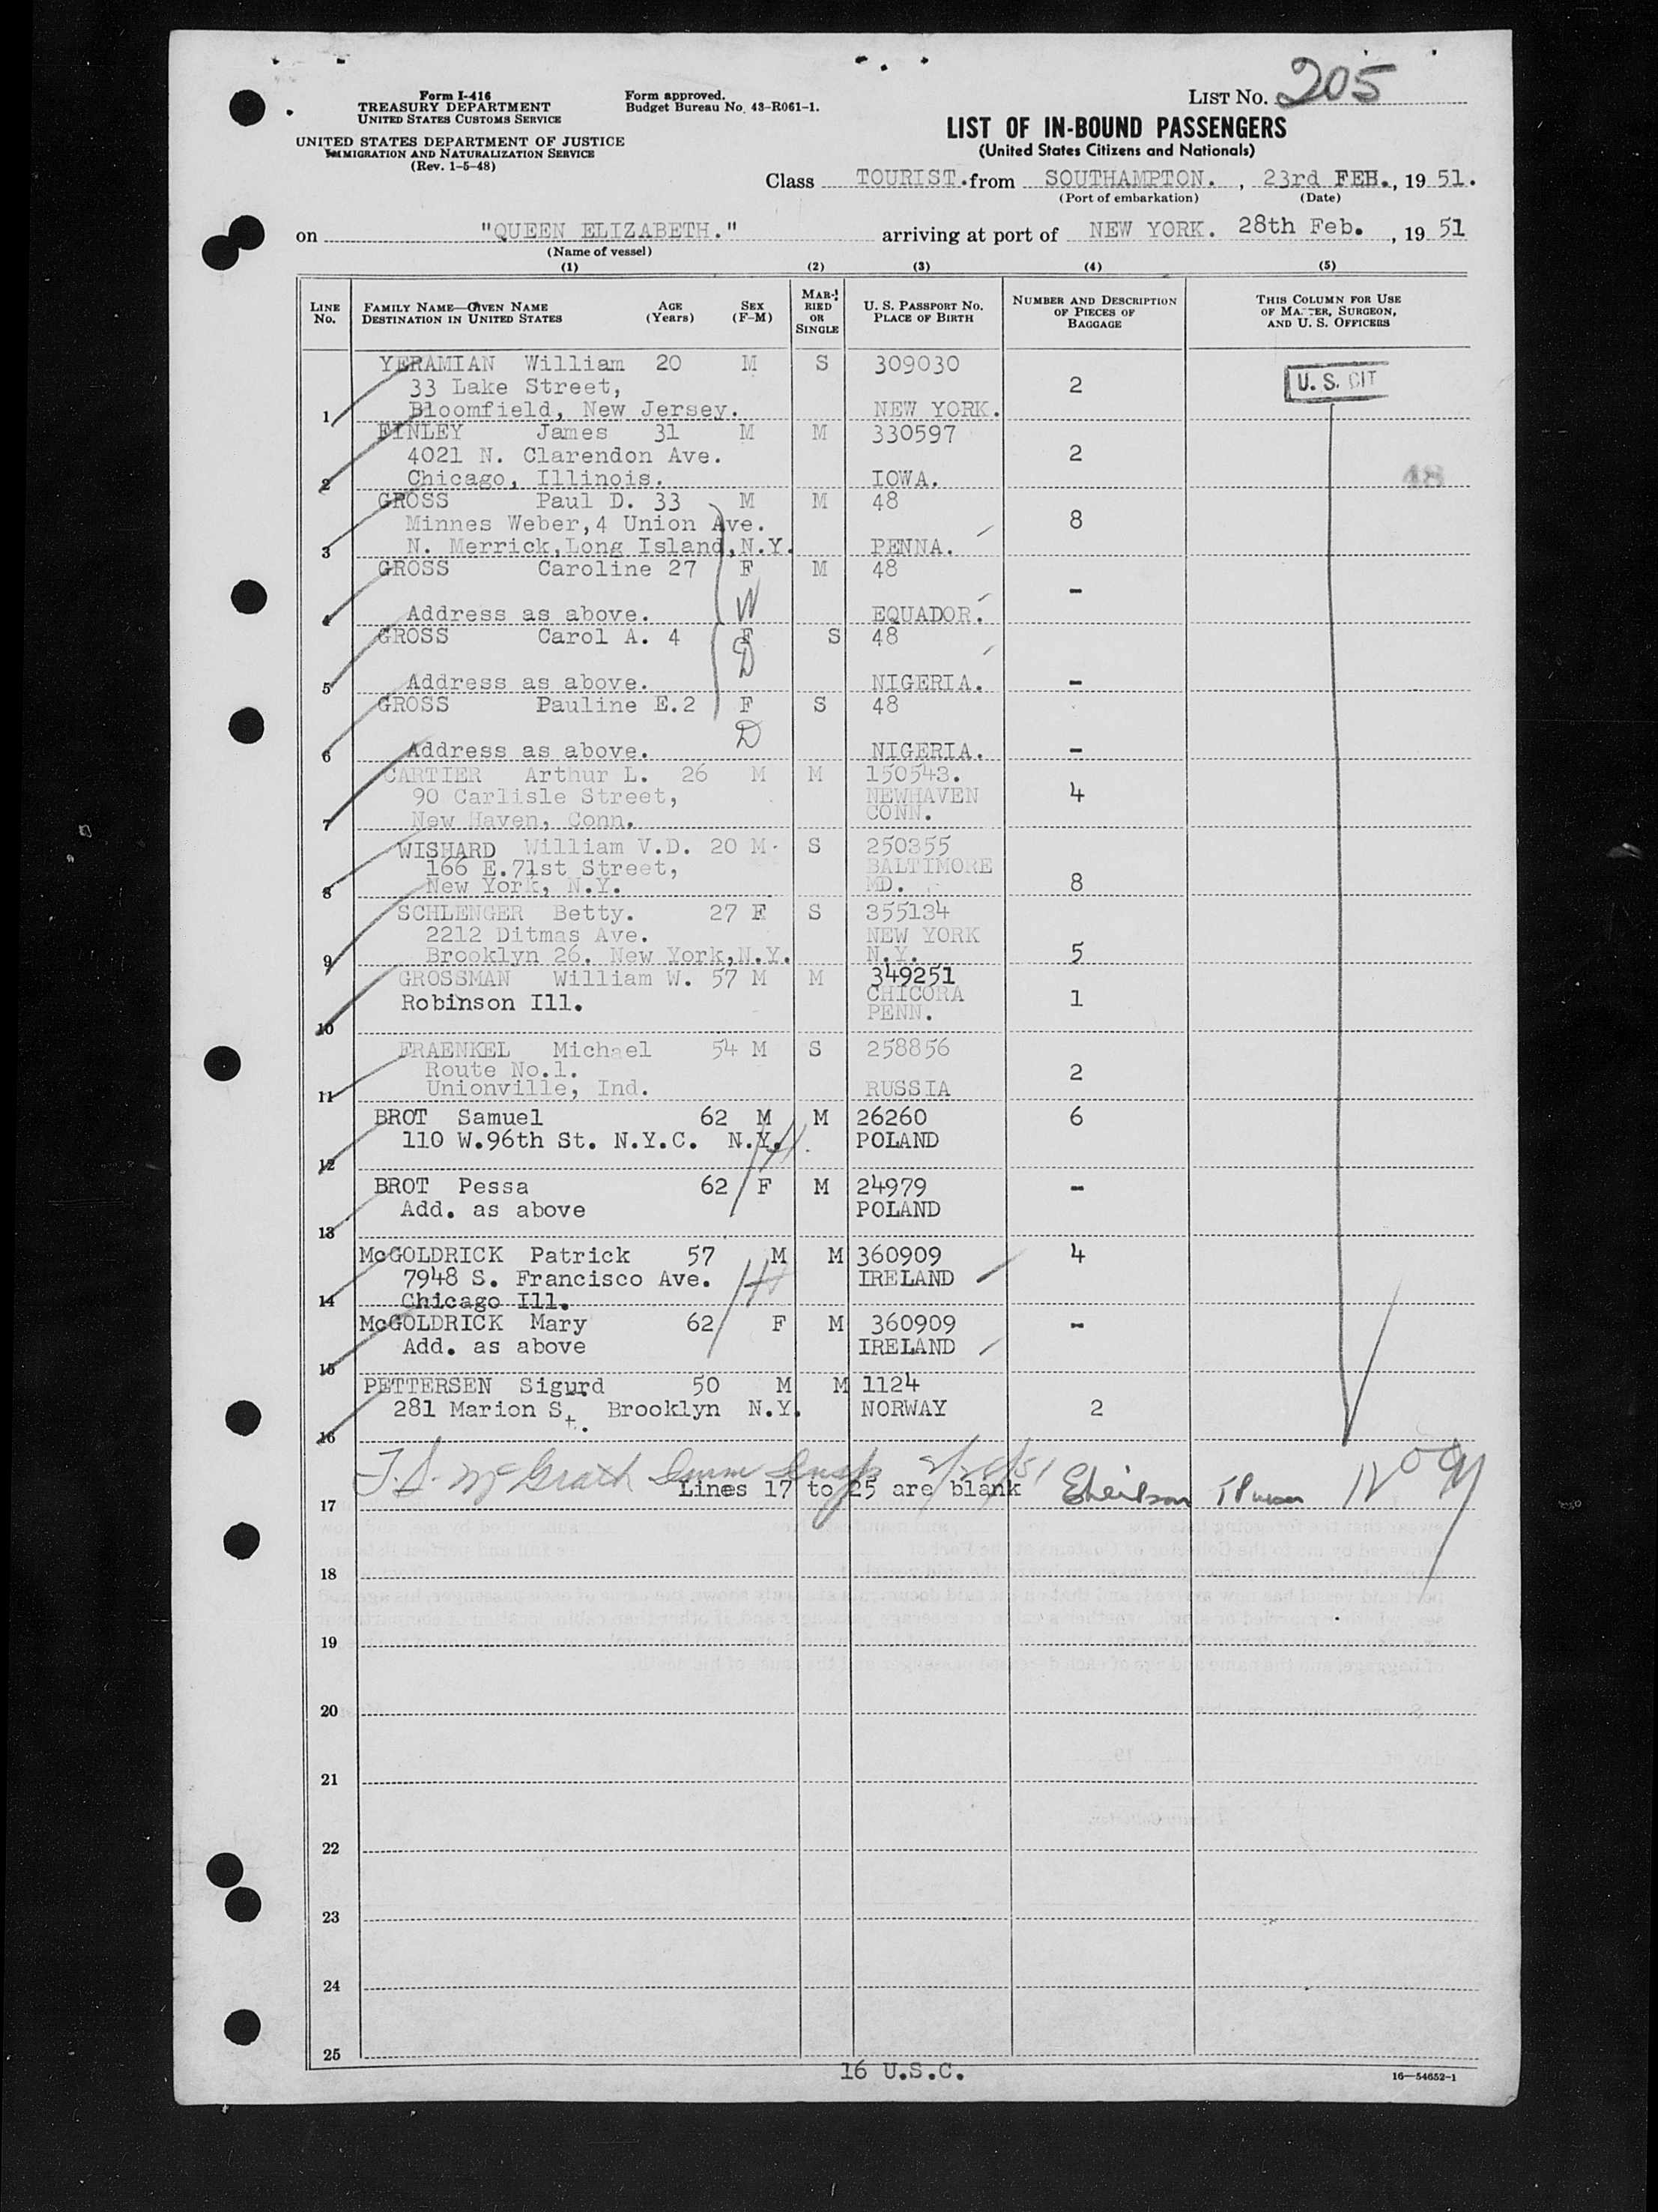 Form I-416
TREASURY DEPARTMENT
UNITED STATES CUSTOMS SERVICE
UNITED STATES DEPARTMENT OF JUSTICE
IMMIGRATION AND NATURALIZATION SERVICE
(Rev. 1-5-48)
Form approved.
Budget Bureau No. 43-R061-1.
LIST NO. 205
LIST OF IN-BOUND PASSENGERS
(United States Citizens and Nationals)
Class TOURIST. from SOUTHAMPTON. , 23rd FEB., 19 51.
(Port of embarkation) (Date)
on "QUEEN ELIZABETH." arriving at port of NEW YORK. 28th Feb. , 19 51
(Name of vessel)
(1) (2) (3) (4) (5)
LINE No. FAMILY NAME—GIVEN NAME DESTINATION IN UNITED STATES AGE (Years) SEX (F-M) MARRIED OR SINGLE U. S. PASSPORT NO. PLACE OF BIRTH NUMBER AND DESCRIPTION OF PIECES OF BAGGAGE THIS COLUMN FOR USE OF MASTER, SURGEON, AND U. S. OFFICERS
YERAMIAN William 20 M S 309030
33 Lake Street, 2 U. S. CIT
1 Bloomfield, New Jersey. NEW YORK.
FINLEY James 31 M M 330597
4021 N. Clarendon Ave. 2
2 Chicago, Illinois. IOWA. 48
GROSS Paul D. 33 M M 48
Minnes Weber,4 Union Ave. 8
3 N. Merrick,Long Island,N.Y. PENNA.
GROSS Caroline 27 F M 48
W -
4 Address as above. EQUADOR.
GROSS Carol A. 4 F S 48
D
5 Address as above. NIGERIA. -
GROSS Pauline E.2 F S 48
D
6 Address as above. NIGERIA. -
CARTIER Arthur L. 26 M M 150543.
90 Carlisle Street, NEWHAVEN 4
7 New Haven, Conn. CONN.
WISHARD William V.D. 20 M. S 250355
166 E.71st Street, BALTIMORE
8 New York, N.Y. MD. 8
SCHLENGER Betty. 27 F S 355134
2212 Ditmas Ave. NEW YORK
9 Brooklyn 26. New York,N.Y. N.Y. 5
GROSSMAN William W. 57 M M 349251
Robinson Ill. CHICORA 1
10 PENN.
FRAENKEL Michael 54 M S 258856
Route No.1. 2
11 Unionville, Ind. RUSSIA
BROT Samuel 62 M M 26260 6
110 W.96th St. N.Y.C. N.Y. POLAND
12 H.
BROT Pessa 62 F M 24979 -
Add. as above POLAND
13
McGOLDRICK Patrick 57 M M 360909 4
7948 S. Francisco Ave. H IRELAND
14 Chicago Ill.
McGOLDRICK Mary 62 F M 360909 -
Add. as above IRELAND
15
PETTERSEN Sigurd 50 M M 1124
281 Marion St. Brooklyn N.Y. NORWAY 2
16
T.S. McGrath Imm Insp 2/28/51
17 Lines 17 to 25 are blank
18
19
20
21
22
23
24
25
16 U.S.C.
16—54652-1